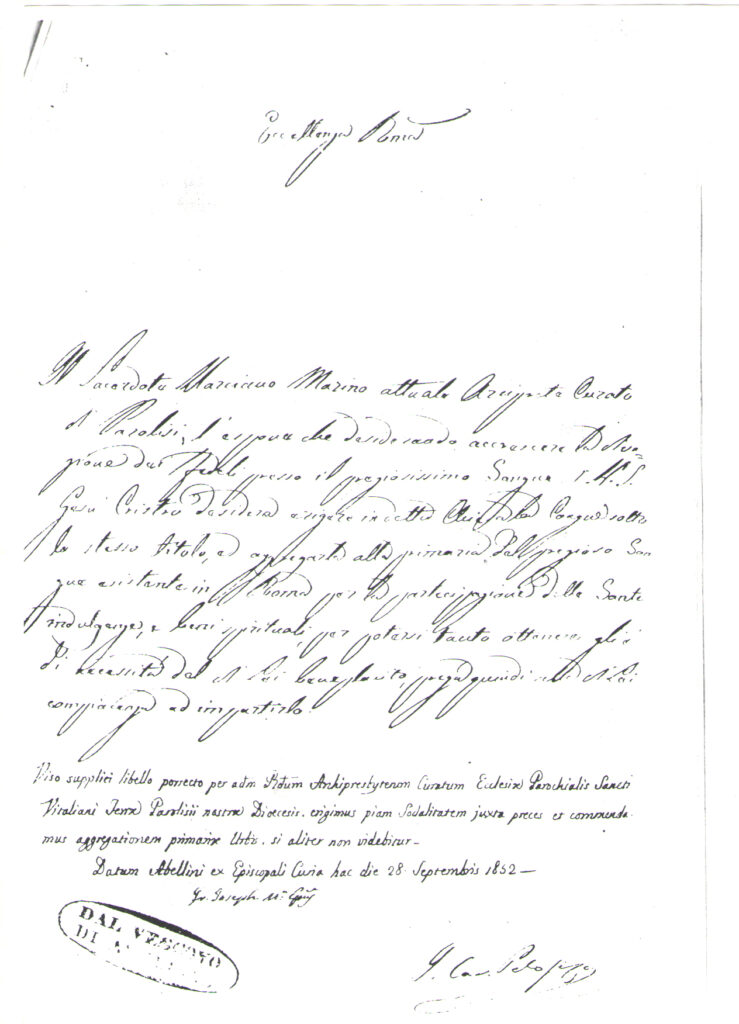 Eccellenza Rma
Il Sacerdote Marciano Marino attuale Arciprete Curato
di Parolisi, l'espone che desiderando accrescere la divo-
zione dei Fedeli presso il preziosissimo Sangue di N.S.
Gesù Cristo desidera erigere in detta Chiesa la Congne sotto
lo stesso titolo, ed aggregarla alla primaria del prezioso San
gue esistente in Roma per la partecipazione delle Sante
indulgenze, e beni spirituali, per potersi tanto ottenere gli è
di necessità del di Lei beneplacito, prega quindi di Lei
compiacenza ad impartirlo.
Viso supplici libello porrecto per adm Rdum Archipresbyterum Curatum Ecclesiæ Parochialis Sancti
Vitaliani Terræ Parolisii nostræ Dioecesis, erigimus piam Sodalitatem juxta preces et commenda-
mus aggregationem primariæ Urbis, si aliter non videbitur-
Datum Abellini ex Episcopali Curia hac die 28 Septembris 1852 —
Fr. Joseph Ma Epũs
DAL VESCOVO
DI